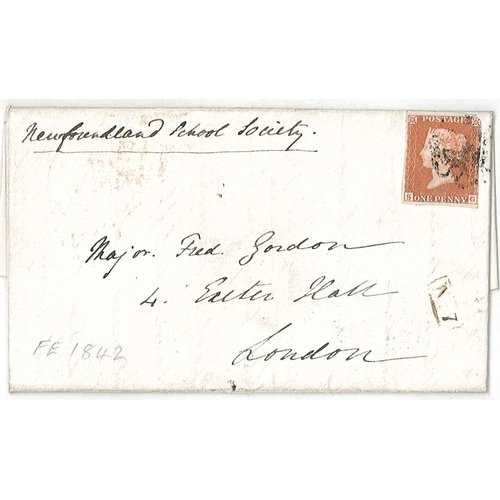 Newfoundland School Society.
POSTAGE
ONE PENNY
S G
Major. Fred. Gordon
4. Exeter Hall
London
FE 1842